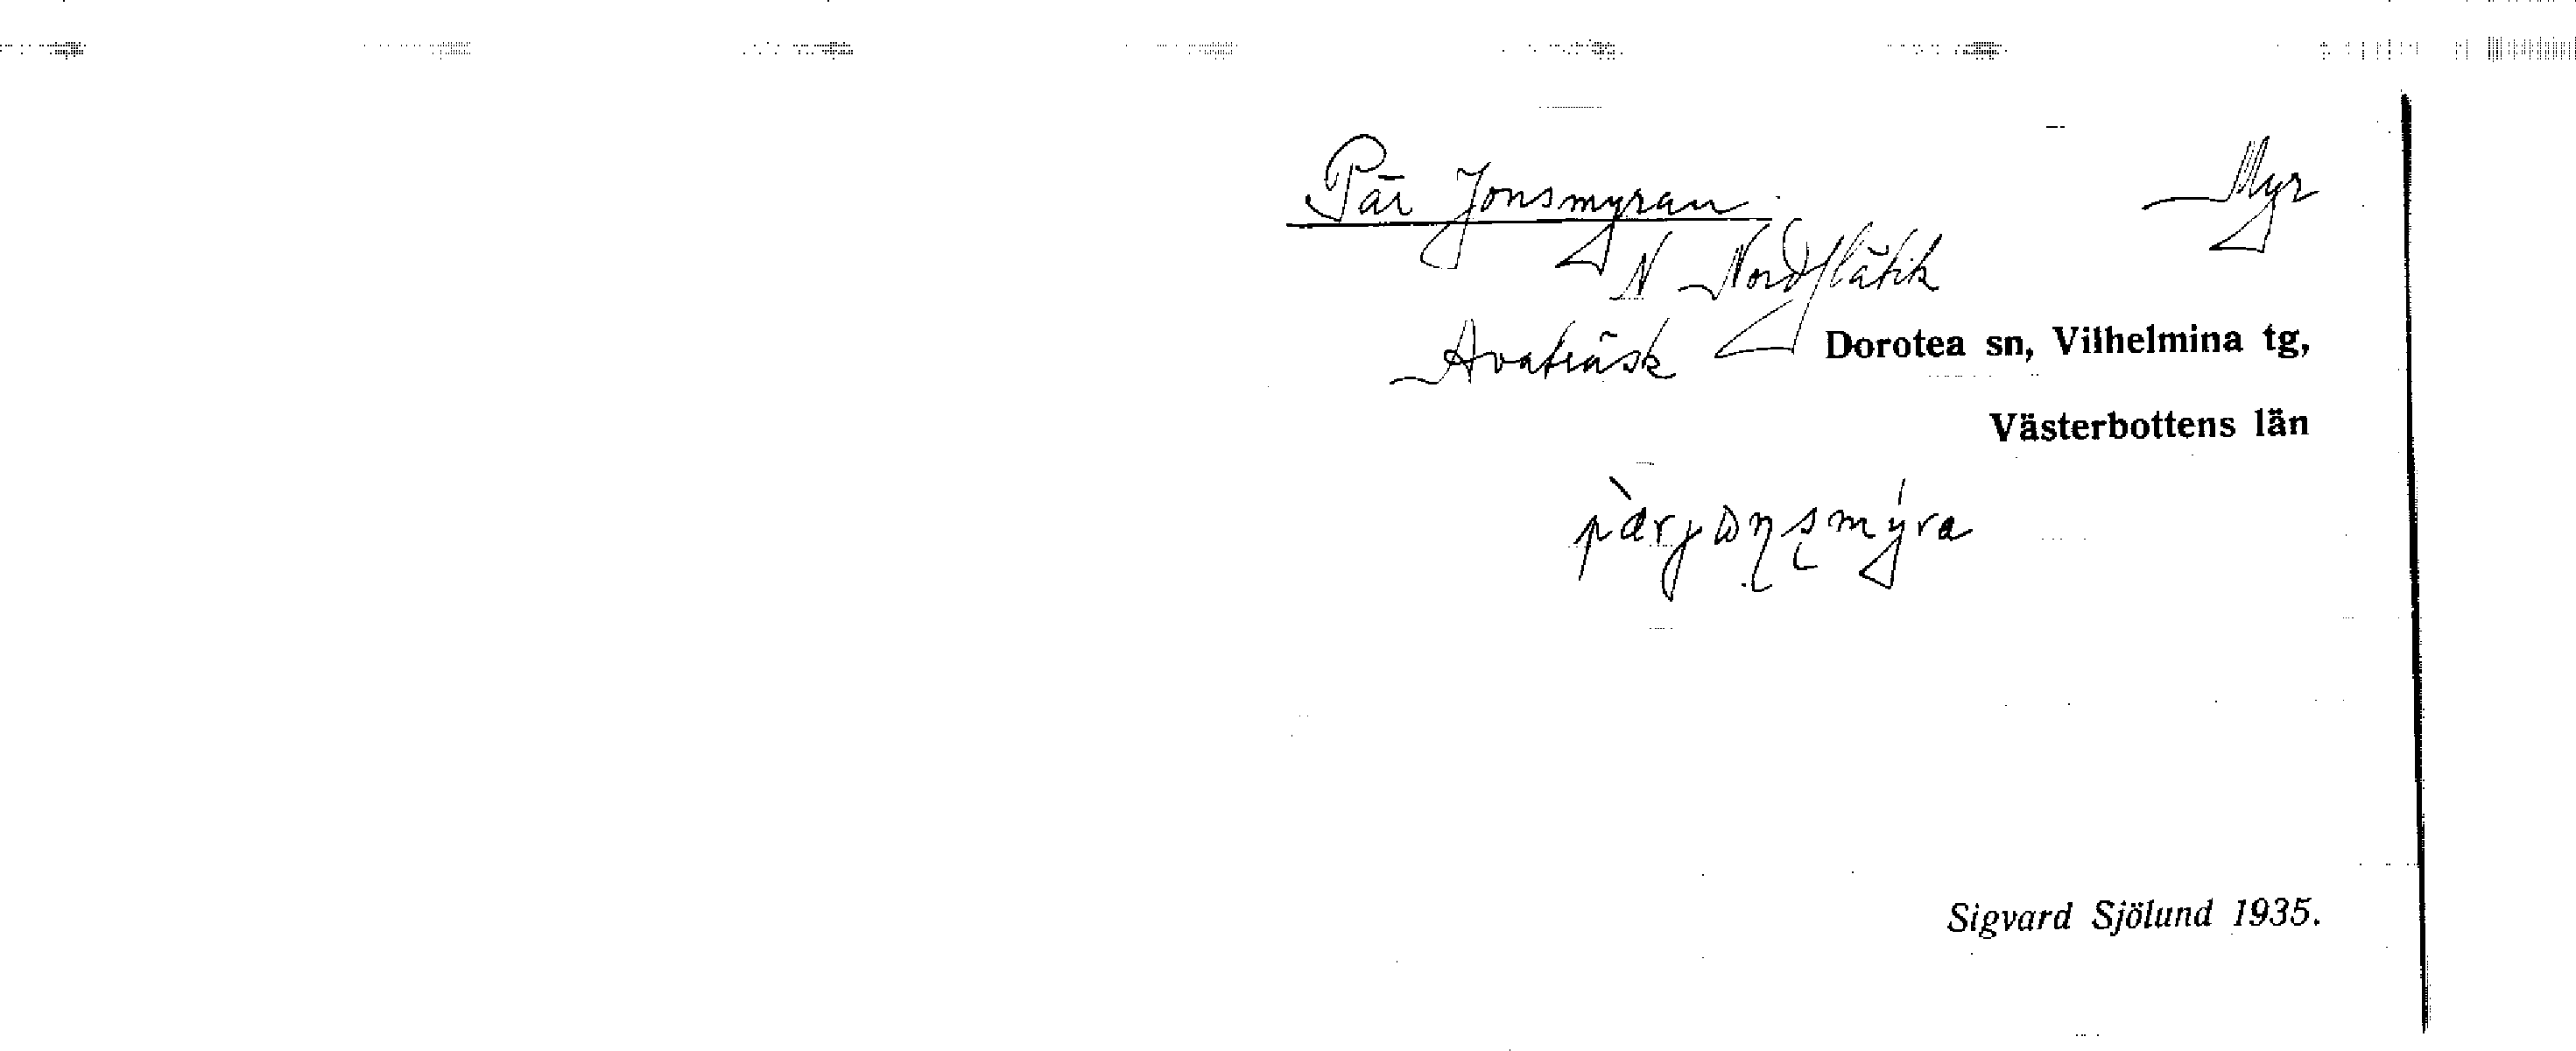 Pär Jonsmyran Myr
N Nordflätik
Avaträsk Dorotea sn, Vilhelmina tg,
Västerbottens län
Sigvard Sjölund 1935.